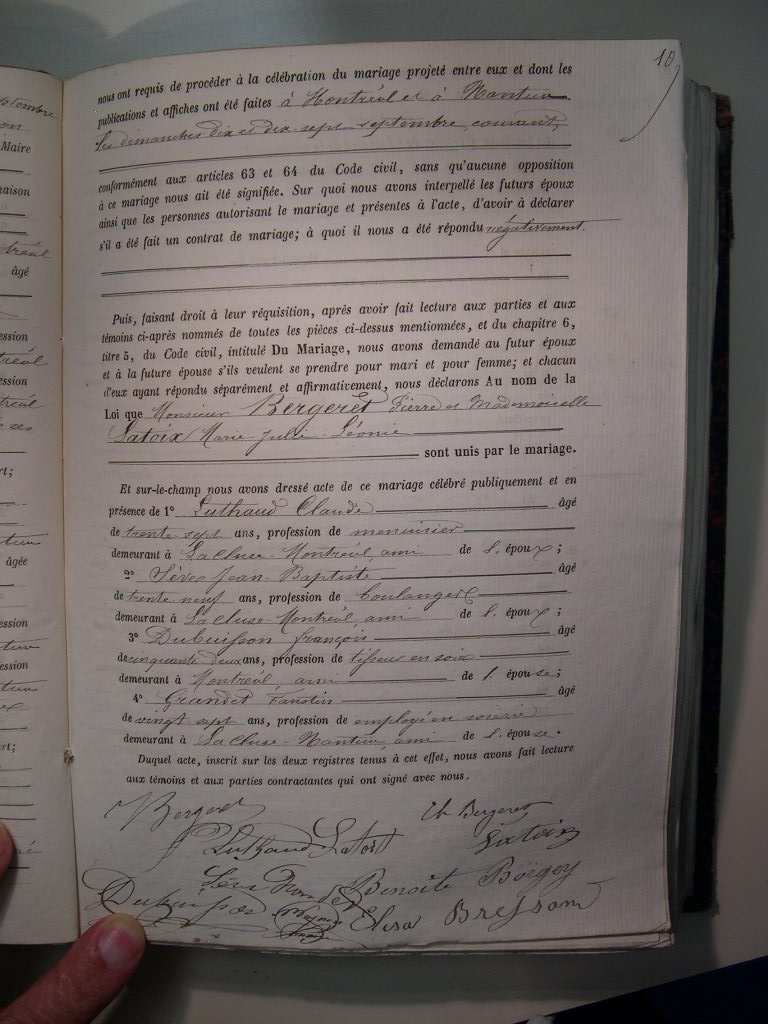 10
nous ont requis de procéder à la célébration du mariage projeté entre eux et dont les
publications et affiches ont été faites à Montréal et à Nantua
les dimanches dix et dix-sept septembre courant,
conformément aux articles 63 et 64 du Code civil, sans qu'aucune opposition
à ce mariage nous ait été signifiée. Sur quoi nous avons interpellé les futurs époux
ainsi que les personnes autorisant le mariage et présentes à l'acte, d'avoir à déclarer
s'il a été fait un contrat de mariage; à quoi il nous a été répondu négativement.
Puis, faisant droit à leur réquisition, après avoir fait lecture aux parties et aux
témoins ci-après nommés de toutes les pièces ci-dessus mentionnées, et du chapitre 6,
titre 5, du Code civil, intitulé Du Mariage, nous avons demandé au futur époux
et à la future épouse s'ils veulent se prendre pour mari et pour femme; et chacun
d'eux ayant répondu séparément et affirmativement, nous déclarons Au nom de la
Loi que Monsieur Bergeret Pierre et Mademoiselle
Latoix Marie-Julie-Léonie
sont unis par le mariage.
Et sur-le-champ nous avons dressé acte de ce mariage célébré publiquement et en
présence de 1° Luthaud Claude âgé
de trente sept ans, profession de menuisier
demeurant à La Cluse-Montréal, ami de l'époux;
2° Sève Jean-Baptiste âgé
de trente neuf ans, profession de boulanger
demeurant à La Cluse Montréal, ami de l'époux;
3° Dubuisson françois âgé
de cinquante deux ans, profession de tisseur en soie
demeurant à Montréal, ami de l'épouse;
4° Grandet âgé
de vingt sept ans, profession de employé en soierie
demeurant à La Cluse-Nantua, ami de l'épouse.
Duquel acte, inscrit sur les deux registres tenus à cet effet, nous avons fait lecture
aux témoins et aux parties contractantes qui ont signé avec nous.
Bergeret Bergeret
Luthaud Latoix Latoix
Benoîte
Dubuisson Elisa